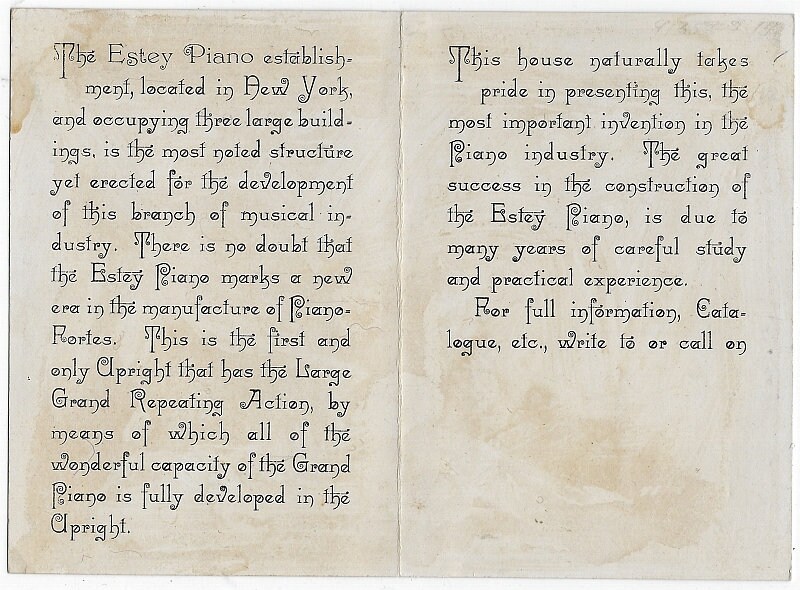 The Estey Piano establish-
ment, located in New York,
and occupying three large build-
ings, is the most noted structure
yet erected for the development
of this branch of musical in-
dustry. There is no doubt that
the Estey Piano marks a new
era in the manufacture of Piano-
Fortes. This is the first and
only Upright that has the Large
Grand Repeating Action, by
means of which all of the
wonderful capacity of the Grand
Piano is fully developed in the
Upright.
This house naturally takes
pride in presenting this, the
most important invention in the
Piano industry. The great
success in the construction of
the Estey Piano, is due to
many years of careful study
and practical experience.
For full information, Cata-
logue, etc., write to or call on